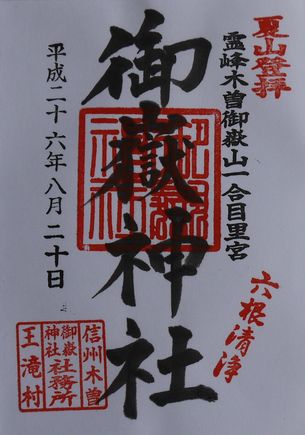 夏山登拝
霊峰木曽御嶽山一合目里宮
六根清浄
御嶽神社
平成二十六年八月二十日
信州木曽
御嶽神社
社務所
王滝村